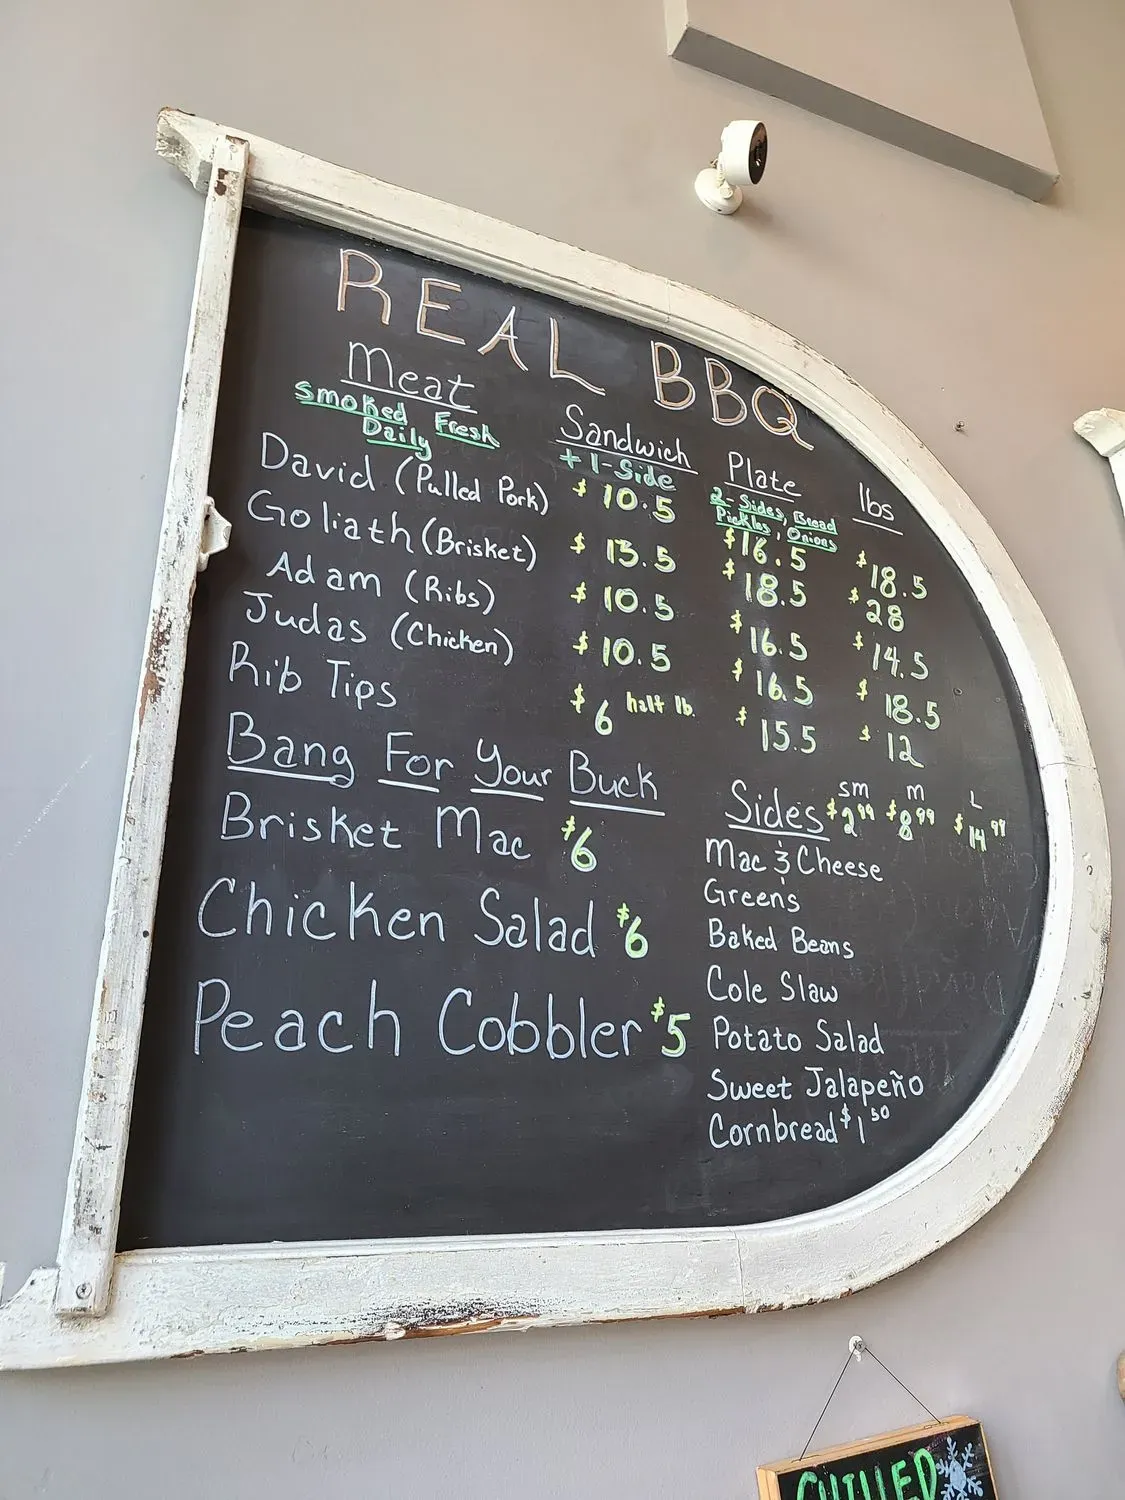 REAL BBQ
Meat
Smoked Fresh
Daily
Sandwich
+ 1-Side
Plate
2-Sides, Bread
Pickles, Onions
lbs
David (Pulled Pork) $10.5 $16.5 $18.5
Goliath (Brisket) $13.5 $18.5 $28
Adam (Ribs) $10.5 $16.5 $14.5
Judas (Chicken) $10.5 $16.5 $18.5
Rib Tips $6 half lb. $15.5 $12
Bang For Your Buck
Brisket Mac $6
Chicken Salad $6
Peach Cobbler $5
sm m L
Sides $2.99 $8.99 $14.99
Mac & Cheese
Greens
Baked Beans
Cole Slaw
Potato Salad
Sweet Jalapeño
Cornbread $1.50
CHILLED